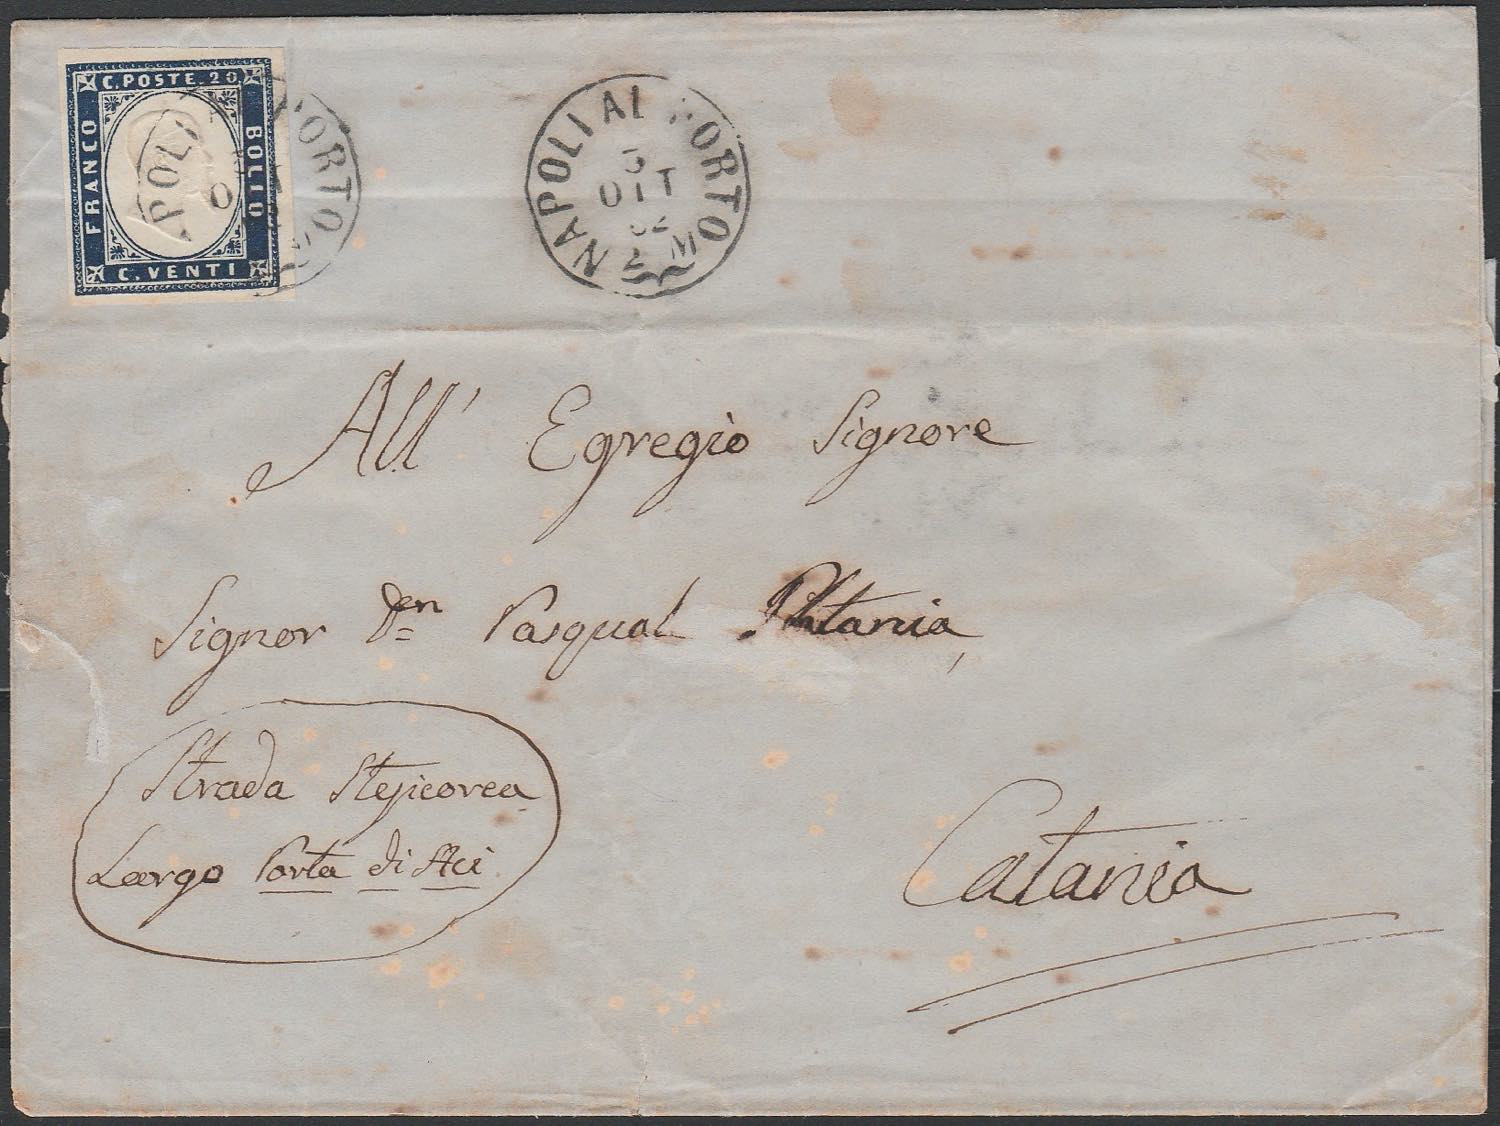 C. POSTE. 20
FRANCO
BOLLO
C. VENTI
NAPOLI AL PORTO
OTT
62
2 M
All' Egregio Signore
Signor Dⁿ Pasqual Platania,
Strada Stesicorea
Largo Porta di Aci
Catania